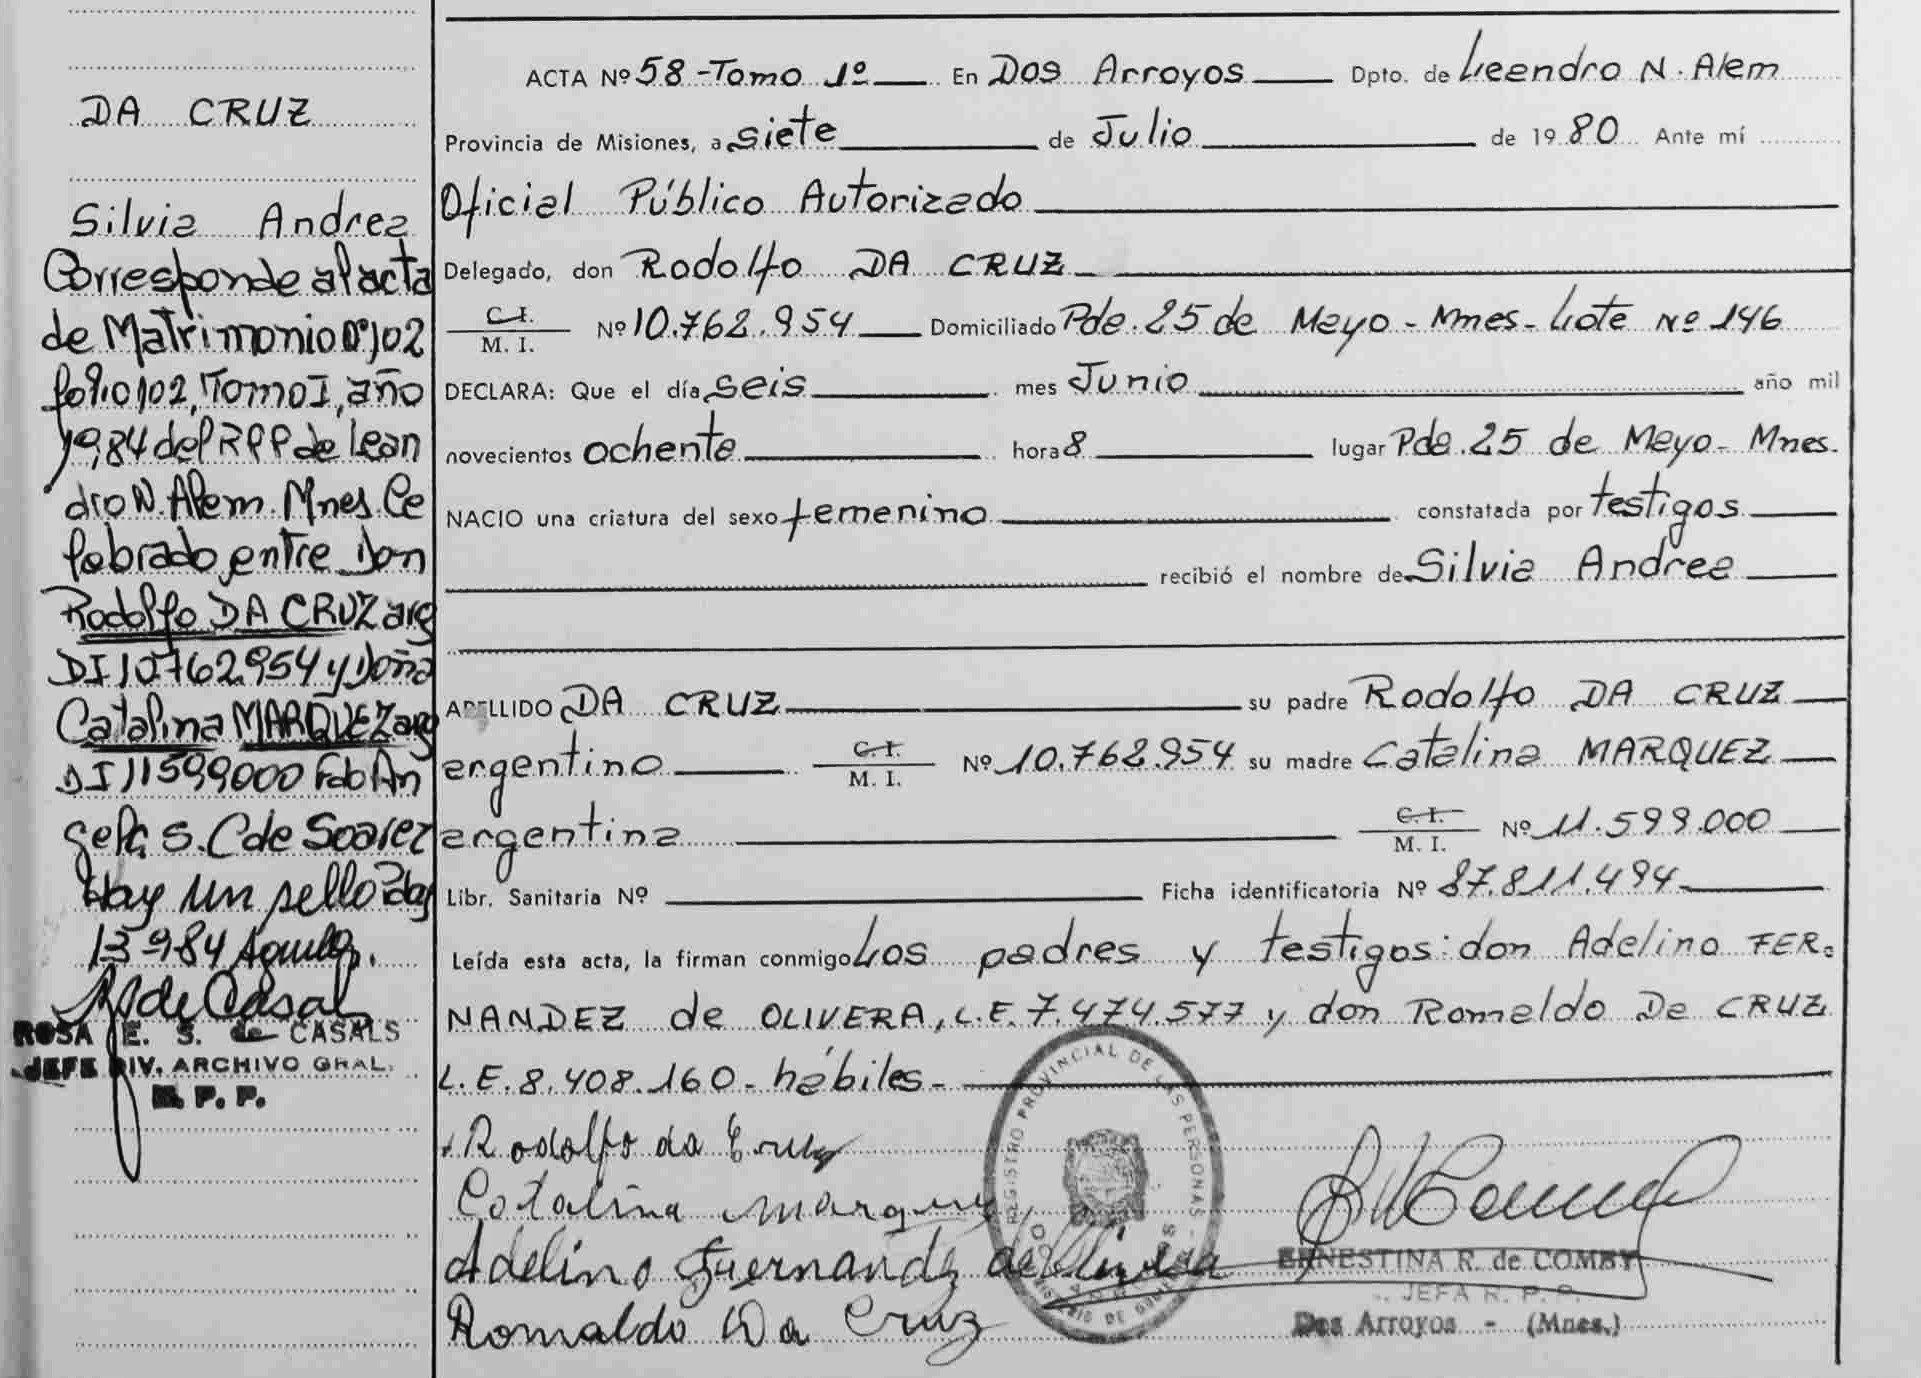 DA CRUZ
Silvia Andrea
Corresponde al acta
de Matrimonio nº 102
folio 102, Tomo I, año
1984 del RPP de Lean
dro N. Alem. Mnes. Ce
lebrado entre Don
Rodolfo DA CRUZ arg
DI 10.762.954 y Doña
Catalina MARQUEZ arg
DI 11599000 Fdo An
gela S. C de Soarez
Hay un sello Pdas
13-9-84
ROSA E. S. de CASALS
JEFE DIV. ARCHIVO GRAL.
R. P. P.
ACTA Nº 58 - Tomo 1º En Dos Arroyos Dpto. de Leandro N. Alem
Provincia de Misiones, a siete de Julio de 19 80 Ante mí
Oficial Público Autorizado
Delegado, don Rodolfo DA CRUZ
C. I.
M. I. Nº 10.762.954 Domiciliado Pde. 25 de Mayo - Mnes - Lote Nº 146
DECLARA: Que el día seis mes Junio año mil
novecientos ochenta hora 8 lugar Pde. 25 de Mayo - Mnes.
NACIO una criatura del sexo femenino constatada por testigos
recibió el nombre de Silvia Andrea
APELLIDO DA CRUZ su padre Rodolfo DA CRUZ
argentino C. I. M. I. Nº 10.762.954 su madre Catalina MARQUEZ
argentina C. I. M. I. Nº 11.599.000
Libr. Sanitaria Nº Ficha identificatoria Nº 87.811.494
Leída esta acta, la firman conmigo Los padres y testigos: don Adelino FER-
NANDEZ de OLIVERA, L.E. 7.474.577 y don Romaldo Da CRUZ
L.E. 8.408.160 - hábiles -
Rodolfo da Cruz
Catalina Marquez
Adelino Fuernandz de Olivera
Romaldo Da Cruz
REGISTRO PROVINCIAL DE LAS PERSONAS
ERNESTINA R. de COMBY
JEFA R. P. P.
Dos Arroyos - (Mnes.)